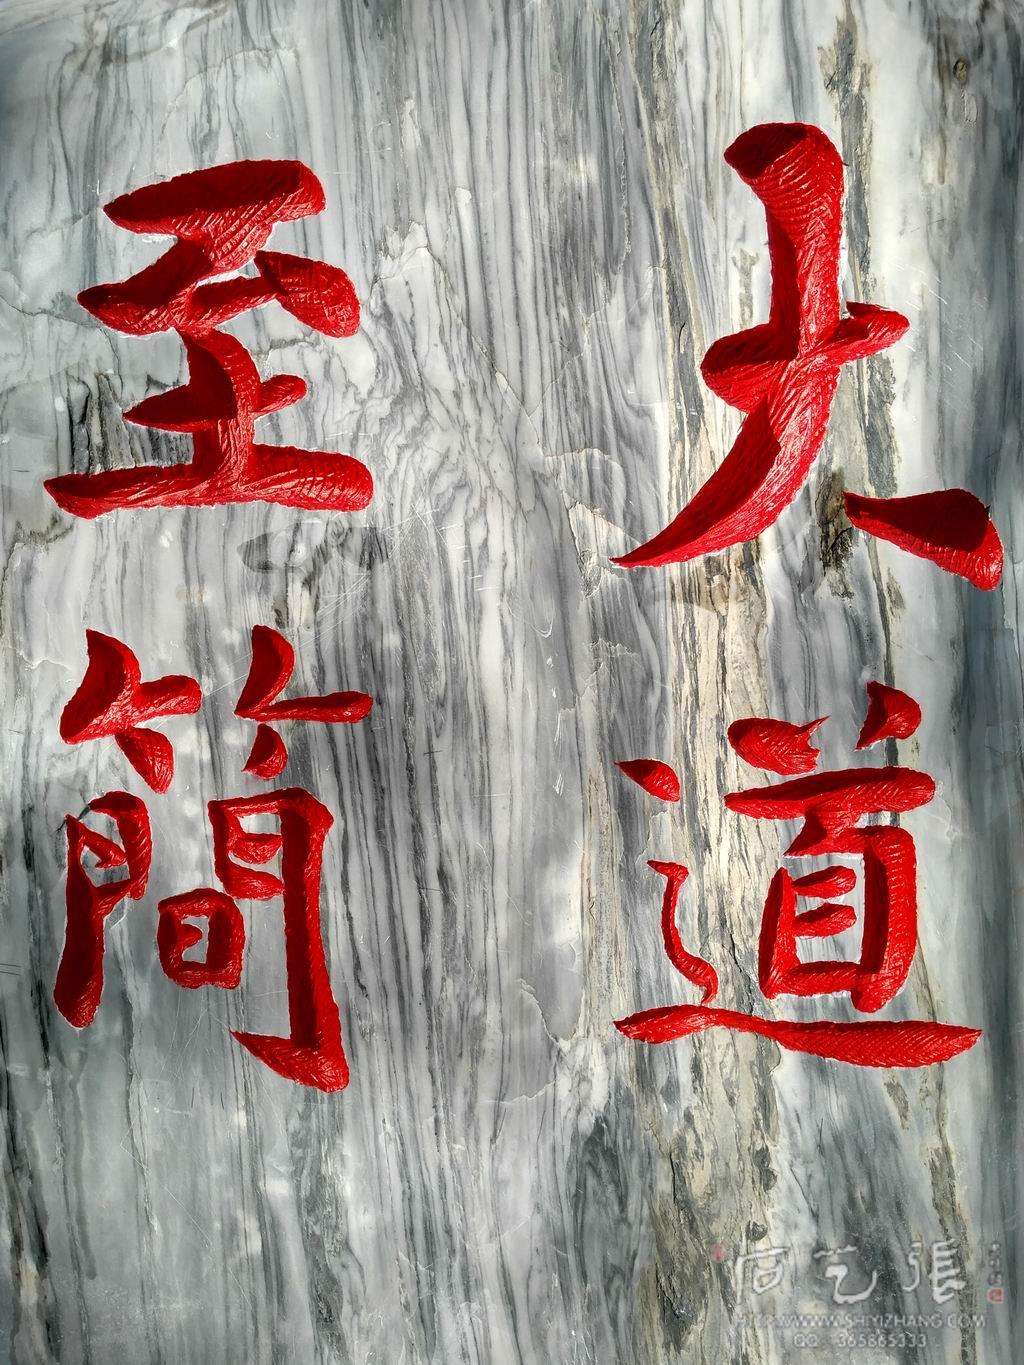 大道
至簡
石艺張
HTTP://WWW.SHIYIZHANG.COM
QQ：365865333